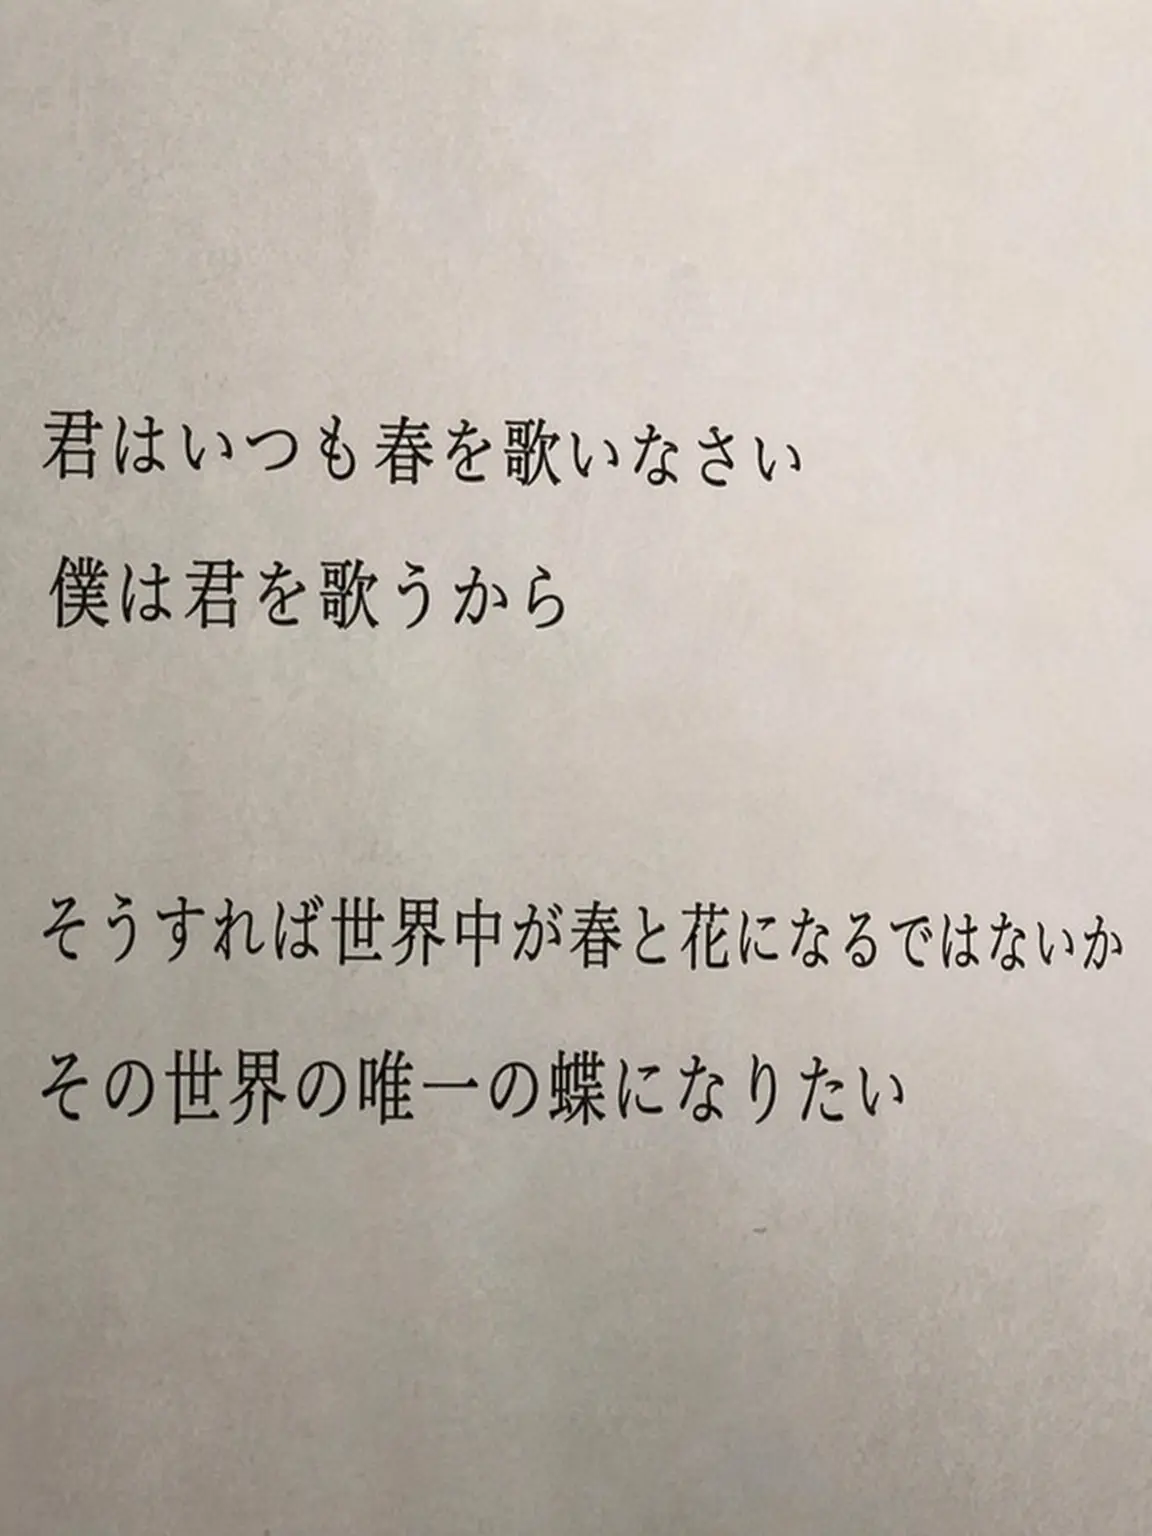 君はいつも春を歌いなさい
僕は君を歌うから
そうすれば世界中が春と花になるではないか
その世界の唯一の蝶になりたい